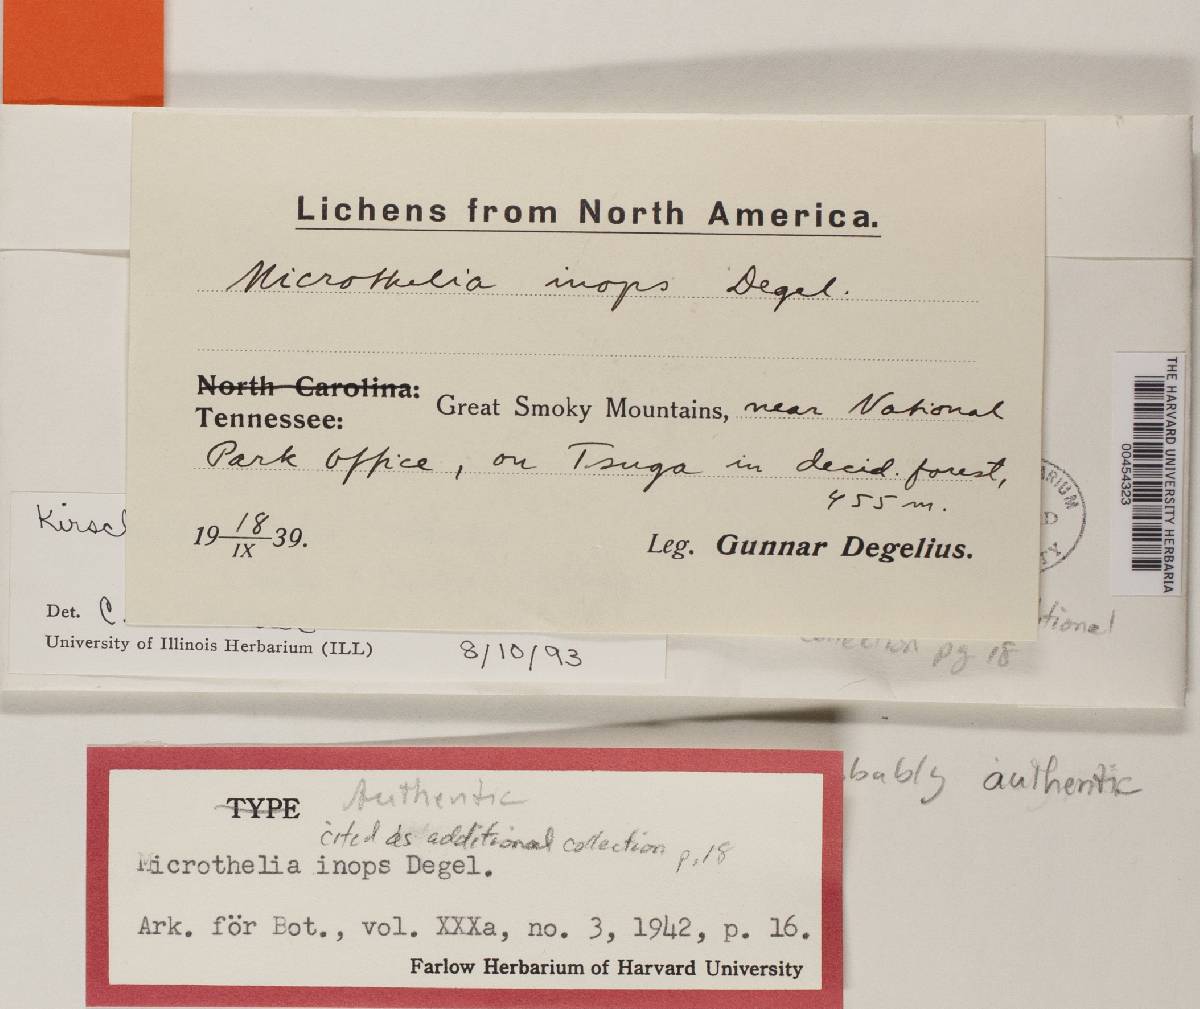 Lichens from North America.
Microthelia inops Degel.
North Carolina:
Tennessee:
Great Smoky Mountains, near National
Park Office, on Tsuga in decid. forest,
455 m.
19 18/IX 39.
Leg. Gunnar Degelius.
THE HARVARD UNIVERSITY HERBARIA
00454323
Kirsc
Det. C.
University of Illinois Herbarium (ILL)
8/10/93
ARIUM
tional
collection pg 18
bably authentic
TYPE Authentic
cited as additional collection p. 18
Microthelia inops Degel.
Ark. för Bot., vol. XXXa, no. 3, 1942, p. 16.
Farlow Herbarium of Harvard University